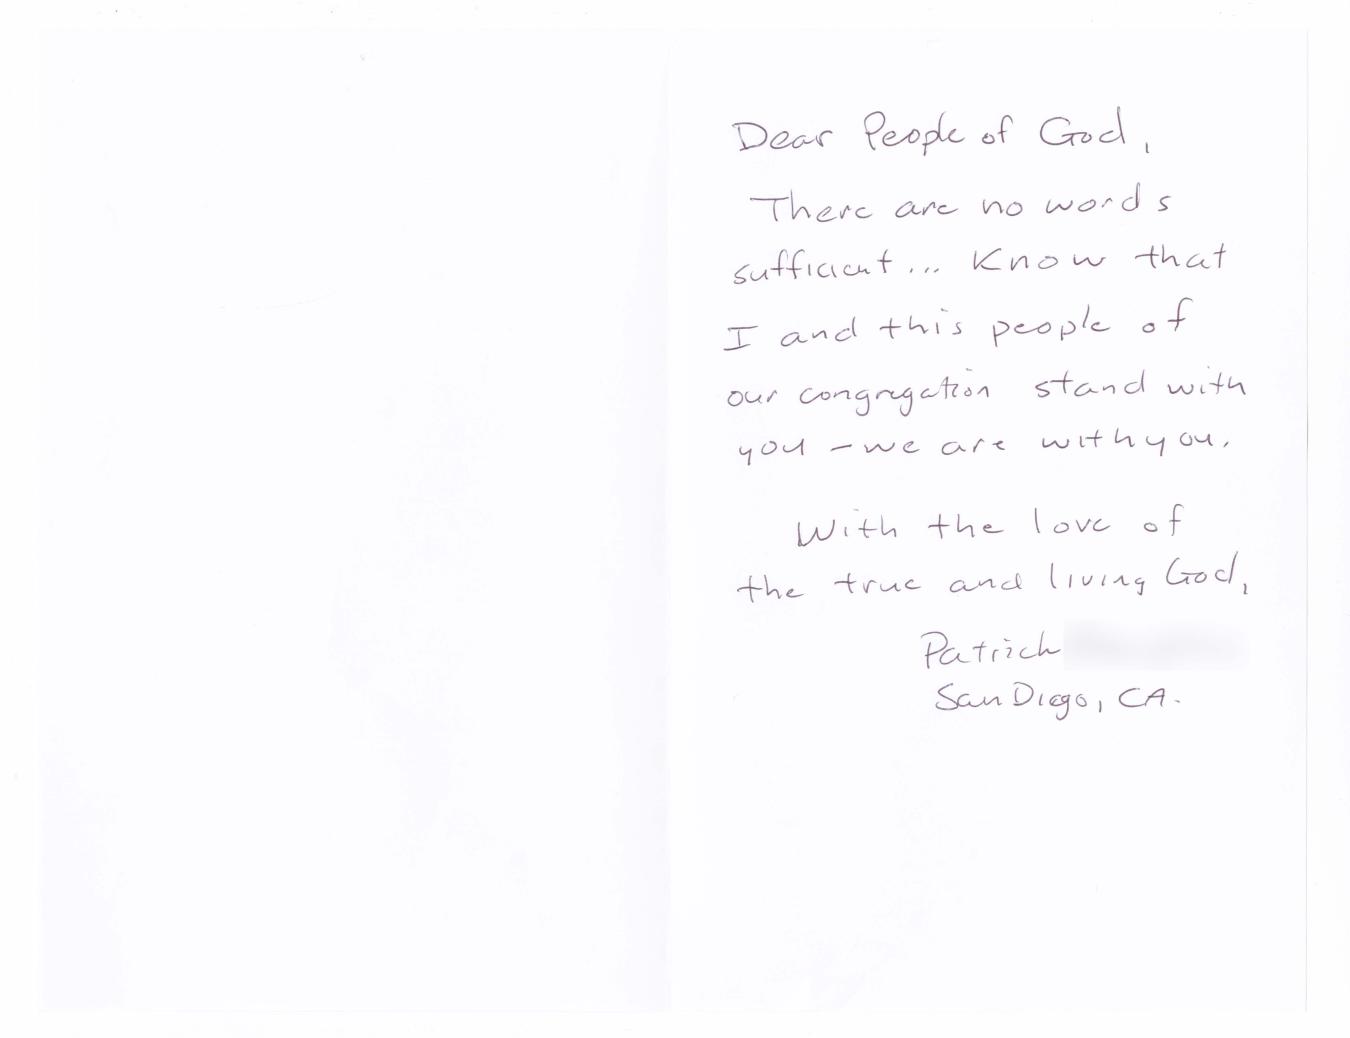 Dear People of God,
There are no words
sufficient... Know that
I and this people of
our congregation stand with
you - we are with you.
With the love of
the true and living God,
Patrick
San Diego, CA.